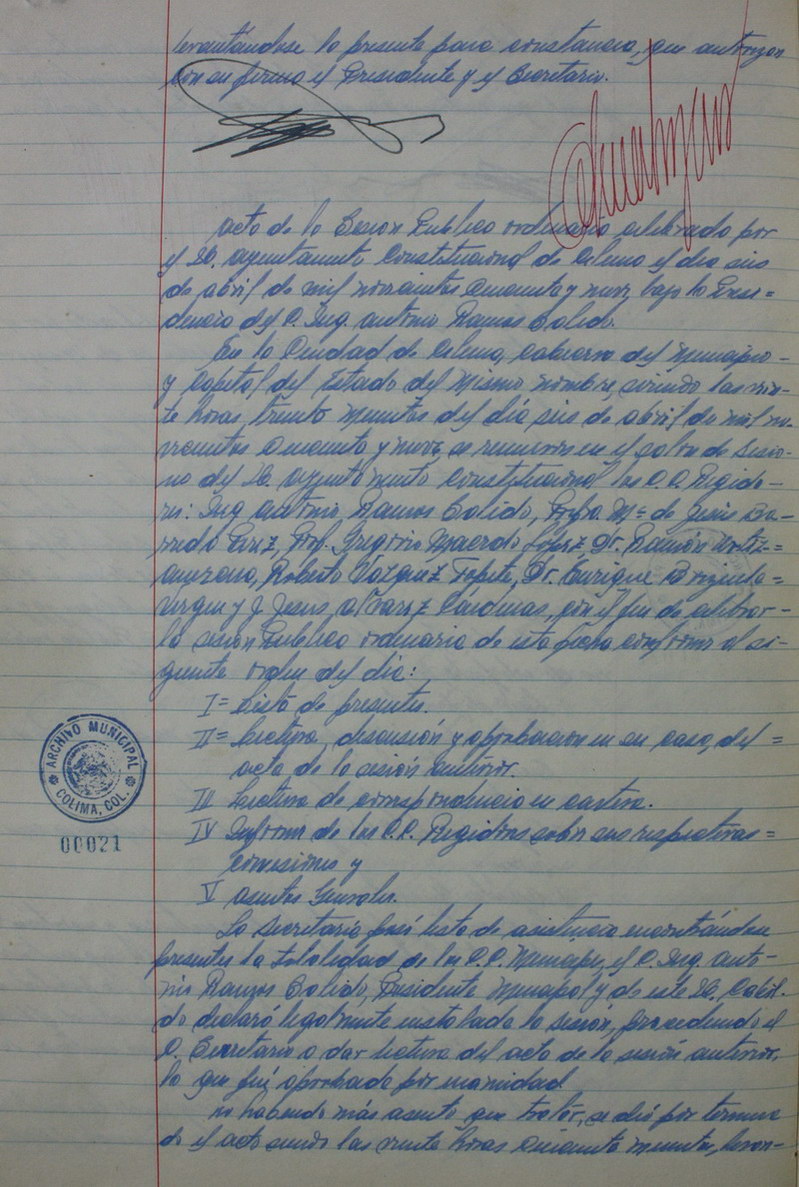 levantándose la presente para constancia, que autorizan
con su firma el Presidente y el Secretario.
Acta de la Sesión Pública ordinaria celebrada por
el H. Ayuntamiento Constitucional de Colima el día seis
de abril de mil novecientos cincuenta y nueve, bajo la Presi=
dencia del C. Ing. Antonio Ramos Salido.
En la Ciudad de Colima, Cabecera del Municipio
y Capital del Estado del mismo nombre, siendo las vein-
te horas, treinta minutos del día seis de abril de mil no-
vecientos cincuenta y nueve, se reunieron en el salón de Sesio-
nes del H. Ayuntamiento Constitucional los C.C. Regido-
res: Ing. Antonio Ramos Salido, Profra. Ma. de Jesús Ba-
rreda Cruz, Prof. Gregorio Macedo López, Dr. Ramón Ortiz=
Amezcua, Roberto Vázquez Topete, Dr. Enrique Brizuela=
Virgen y J. Jesús Alvarez Cárdenas, con el fin de celebrar-
la sesión Pública ordinaria de esta fecha conforme al si-
guiente orden del día:
I= Lista de presentes.
II= Lectura, discusión y aprobación en su caso, del =
acta de la sesión anterior.
III Lectura de correspondencia en cartera.
IV Informe de los C.C. Regidores sobre sus respectivas=
Comisiones y
V Asuntos Generales.
ARCHIVO MUNICIPAL
COLIMA, COL.
00021
La Secretaría pasó lista de asistencia encontrándose
presentes la totalidad de los C.C. Munícipes, el C. Ing. Anto-
nio Ramos Salido, Presidente Municipal y de este H. Cabil-
do declaró legalmente instalada la sesión, procediendo el
C. Secretario a dar lectura del acta de la sesión anterior,
la que fué aprobada por unanimidad
no habiendo más asunto que tratar, se dió por termina
do el acto siendo las veinte horas cincuenta minutos, levan-